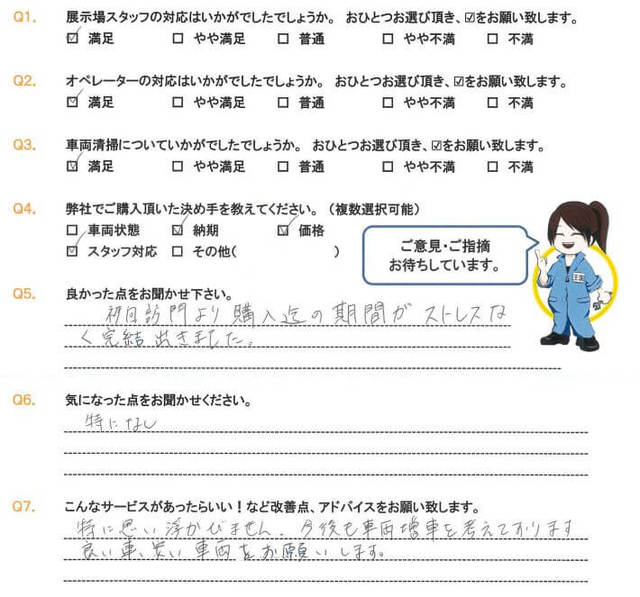 Q1. 展示場スタッフの対応はいかがでしたでしょうか。 おひとつお選び頂き、☑をお願い致します。
☑ 満足 □ やや満足 □ 普通 □ やや不満 □ 不満
Q2. オペレーターの対応はいかがでしたでしょうか。 おひとつお選び頂き、☑をお願い致します。
☑ 満足 □ やや満足 □ 普通 □ やや不満 □ 不満
Q3. 車両清掃についていかがでしたでしょうか。 おひとつお選び頂き、☑をお願い致します。
☑ 満足 □ やや満足 □ 普通 □ やや不満 □ 不満
Q4. 弊社でご購入頂いた決め手を教えてください。(複数選択可能)
□ 車両状態 ☑ 納期 ☑ 価格
☑ スタッフ対応 □ その他( )
ご意見・ご指摘
お待ちしています。
Q5. 良かった点をお聞かせ下さい。
初回訪問より購入迄の期間がストレスな
く完結出きました。
Q6. 気になった点をお聞かせください。
特になし
Q7. こんなサービスがあったらいい!など改善点、アドバイスをお願い致します。
特に思い浮かびません。今後も車両増車を考えております
良い車、安い車両をお願いします。